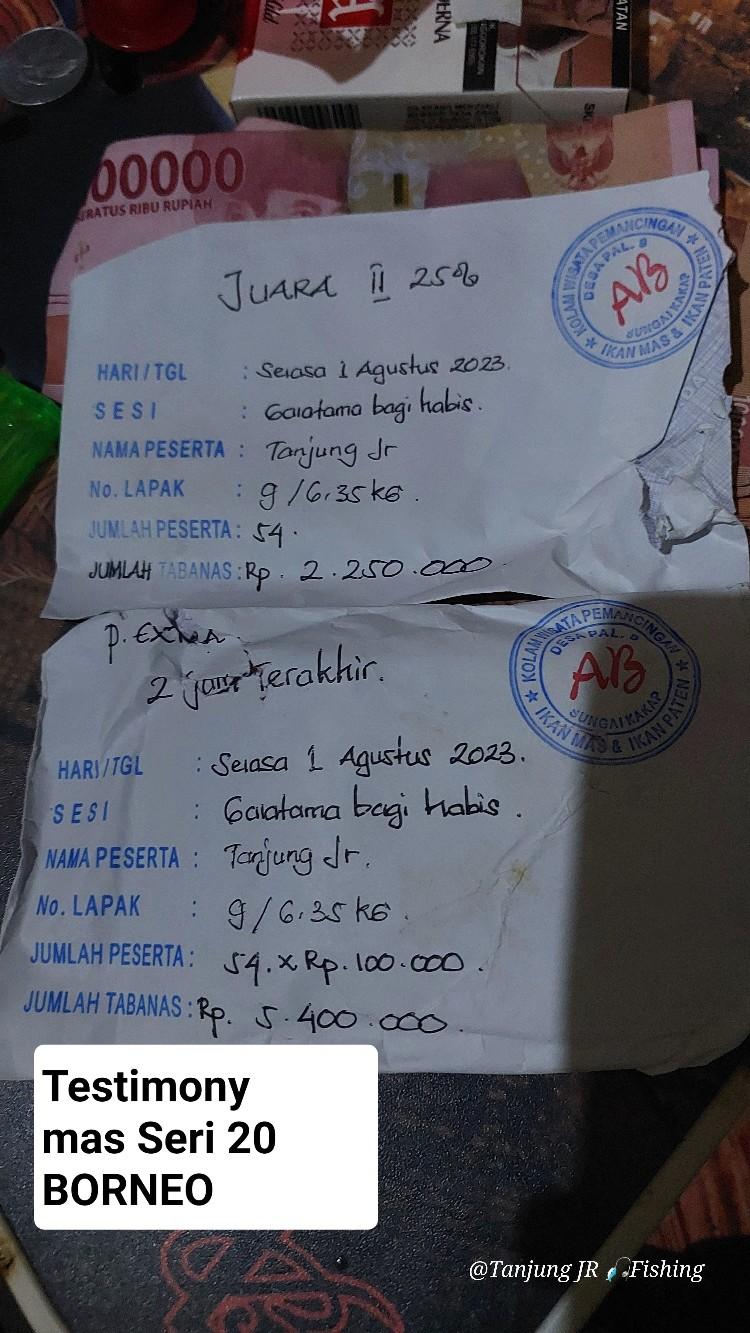 ERNA
ATAN
00000
RATUS RIBU RUPIAH
JUARA II 25%
KOLAM WISATA PEMANCINGAN
DESA PAL. 9
AB
SUNGAI KAKAP
IKAN MAS & IKAN PATEN
HARI / TGL : Selasa 1 Agustus 2023.
SESI : Galatama bagi habis.
NAMA PESERTA : Tanjung Jr
No. LAPAK : 9 / 6.35 kg.
JUMLAH PESERTA : 54.
JUMLAH TABANAS : Rp. 2.250.000
P. EXTRA
2 jam Terakhir.
KOLAM WISATA PEMANCINGAN
DESA PAL. 9
AB
SUNGAI KAKAP
IKAN MAS & IKAN PATEN
HARI / TGL : Selasa 1 Agustus 2023.
SESI : Galatama bagi habis.
NAMA PESERTA : Tanjung Jr.
No. LAPAK : 9 / 6.35 kg.
JUMLAH PESERTA : 54. x Rp. 100.000.
JUMLAH TABANAS : Rp. 5.400.000.
Testimony
mas Seri 20
BORNEO
@Tanjung JR 🎣Fishing